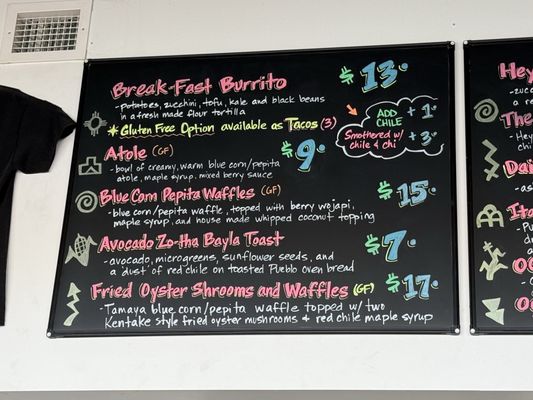 Break-Fast Burrito $13.
-potatoes, zucchini, tofu, kale and black beans
in a fresh made flour tortilla
*Gluten Free Option available as Tacos (3)
ADD CHILE +1.
Smothered w/ chile & chi +3.
Atole (GF) $9.
-bowl of creamy, warm blue corn/pepita
atole, maple syrup, mixed berry sauce
Blue Corn Pepita Waffles (GF) $15.
-blue corn/pepita waffle, topped with berry wojapi,
maple syrup, and house made whipped coconut topping
Avocado Zo-tha Bayla Toast $7.
-avocado, microgreens, sunflower seeds, and
a 'dust' of red chile on toasted Pueblo oven bread
Fried Oyster Shrooms and Waffles (GF) $17.
-Tamaya blue corn/pepita waffle topped w/ two
Kentake style fried oyster mushrooms & red chile maple syrup
Hey
The
Dai
Ita